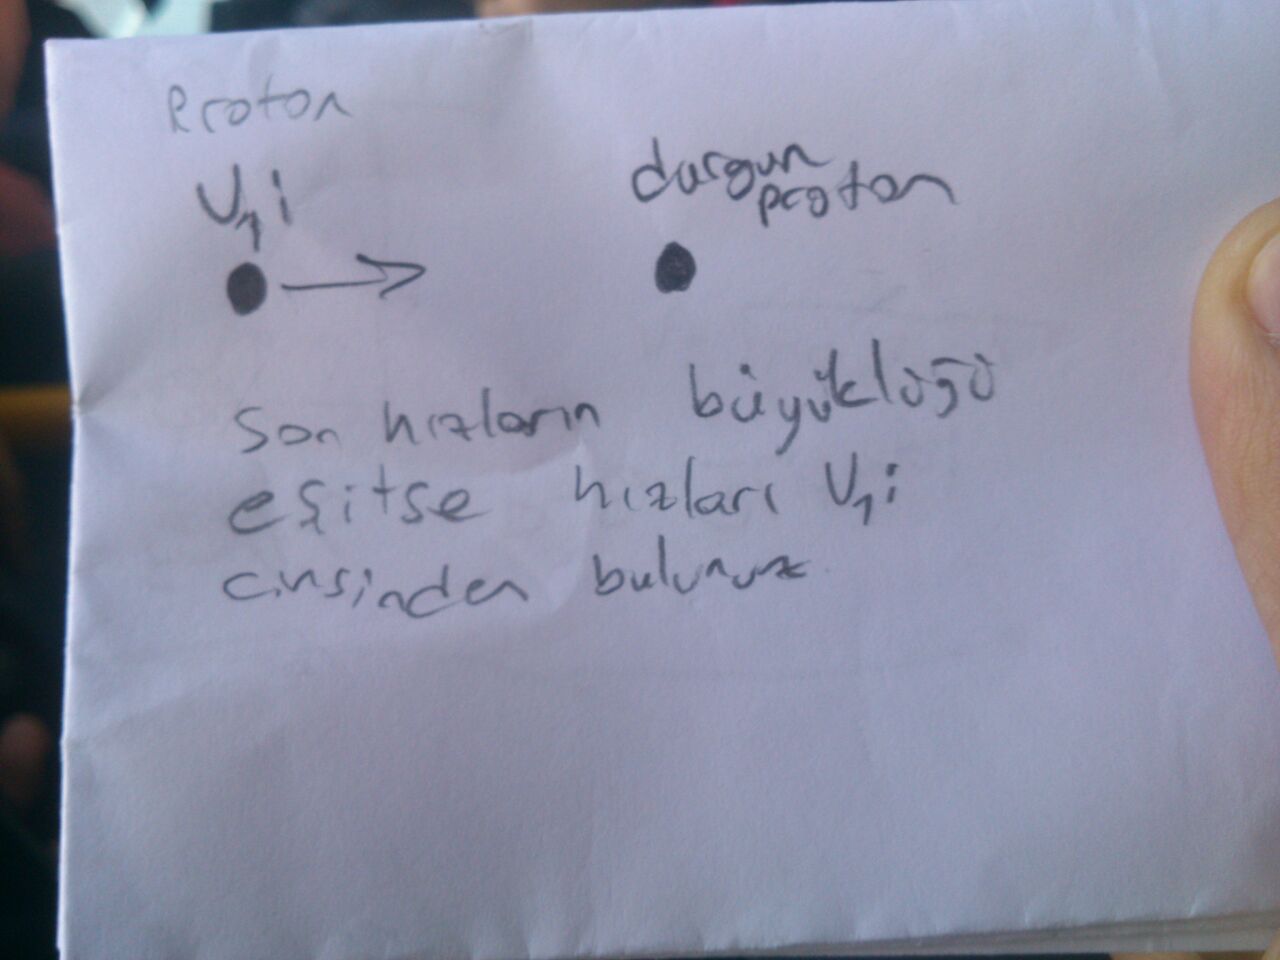 Proton
V₁i
durgun
proton
Son hızların büyüklüğü
eşitse hızları V₁i
cinsinden bulunuz.